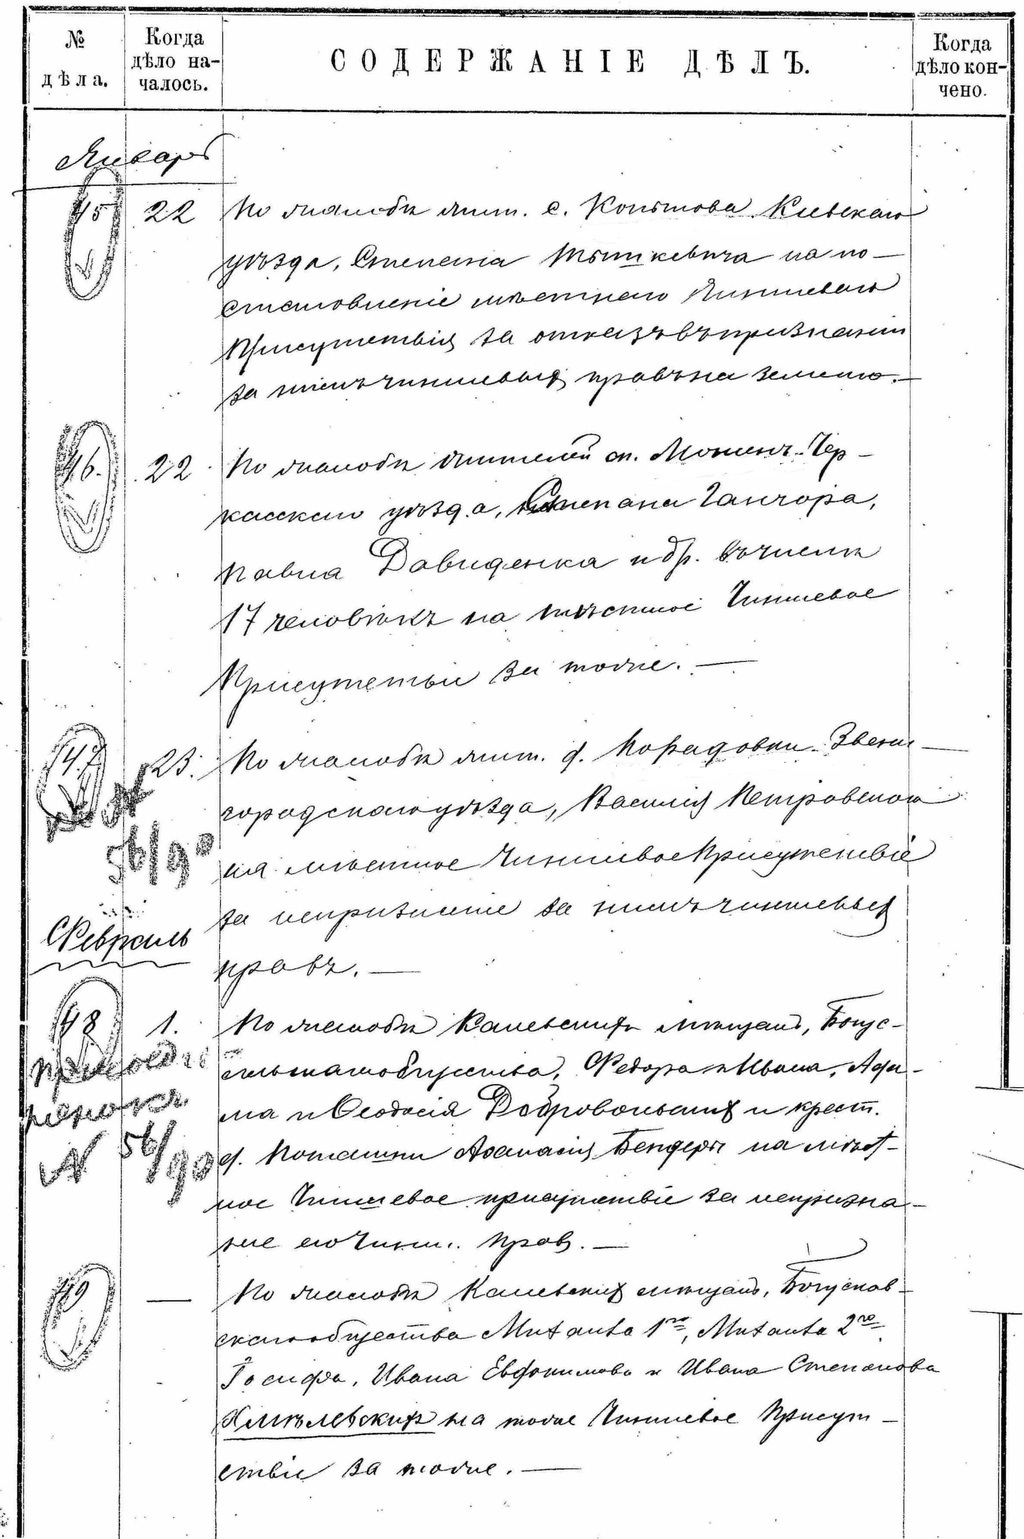 № дѣла.
Когда дѣло началось.
СОДЕРЖАНІЕ ДѢЛЪ.
Когда дѣло кончено.
Январь
45 22 По жалобѣ жит. с. Копытова Кіевскаго
уѣзда, Степана Тышкевича на по-
становленіе мѣстнаго Чиншеваго
Присутствія за отказъ въ признаніи
за нимъ чиншевыхъ правъ на землю.—
46. 22. По жалобѣ жителей м. Мошенъ Чер-
касскаго уѣзда, Степана Ганчора,
Павла Давиденка и др. въ числѣ
17 человѣкъ на мѣстное Чиншевое
Присутствіе за тоже. —
47 23. По жалобѣ жит. д. Порадовки Звени-
городскаго уѣзда, Василія Петровскаго
на мѣстное Чиншевое Присутствіе
за непризнаніе за нимъ чиншевыхъ
правъ. —
къ №
56/90
Февраль
48 1. По жалобѣ Каневскихъ мѣщанъ, Богус-
лавскаго общества, Федора и Ивана, Ада-
ма и Ѳеодосія Добровольскихъ и крест.
д. Поташни Афанасія Бендеры на мѣст-
ное Чиншевое присутствіе за непризна-
ніе его Чинш. прав. —
№ 56/90
49 — По жалобѣ Каневскихъ мѣщанъ, Богуслав-
скаго общества Михаила 1го, Михаила 2го,
Іосифа, Ивана Евдокимова и Ивана Степанова
Хмѣлевскихъ на тоже Чиншевое Присут-
ствіе за тоже. —